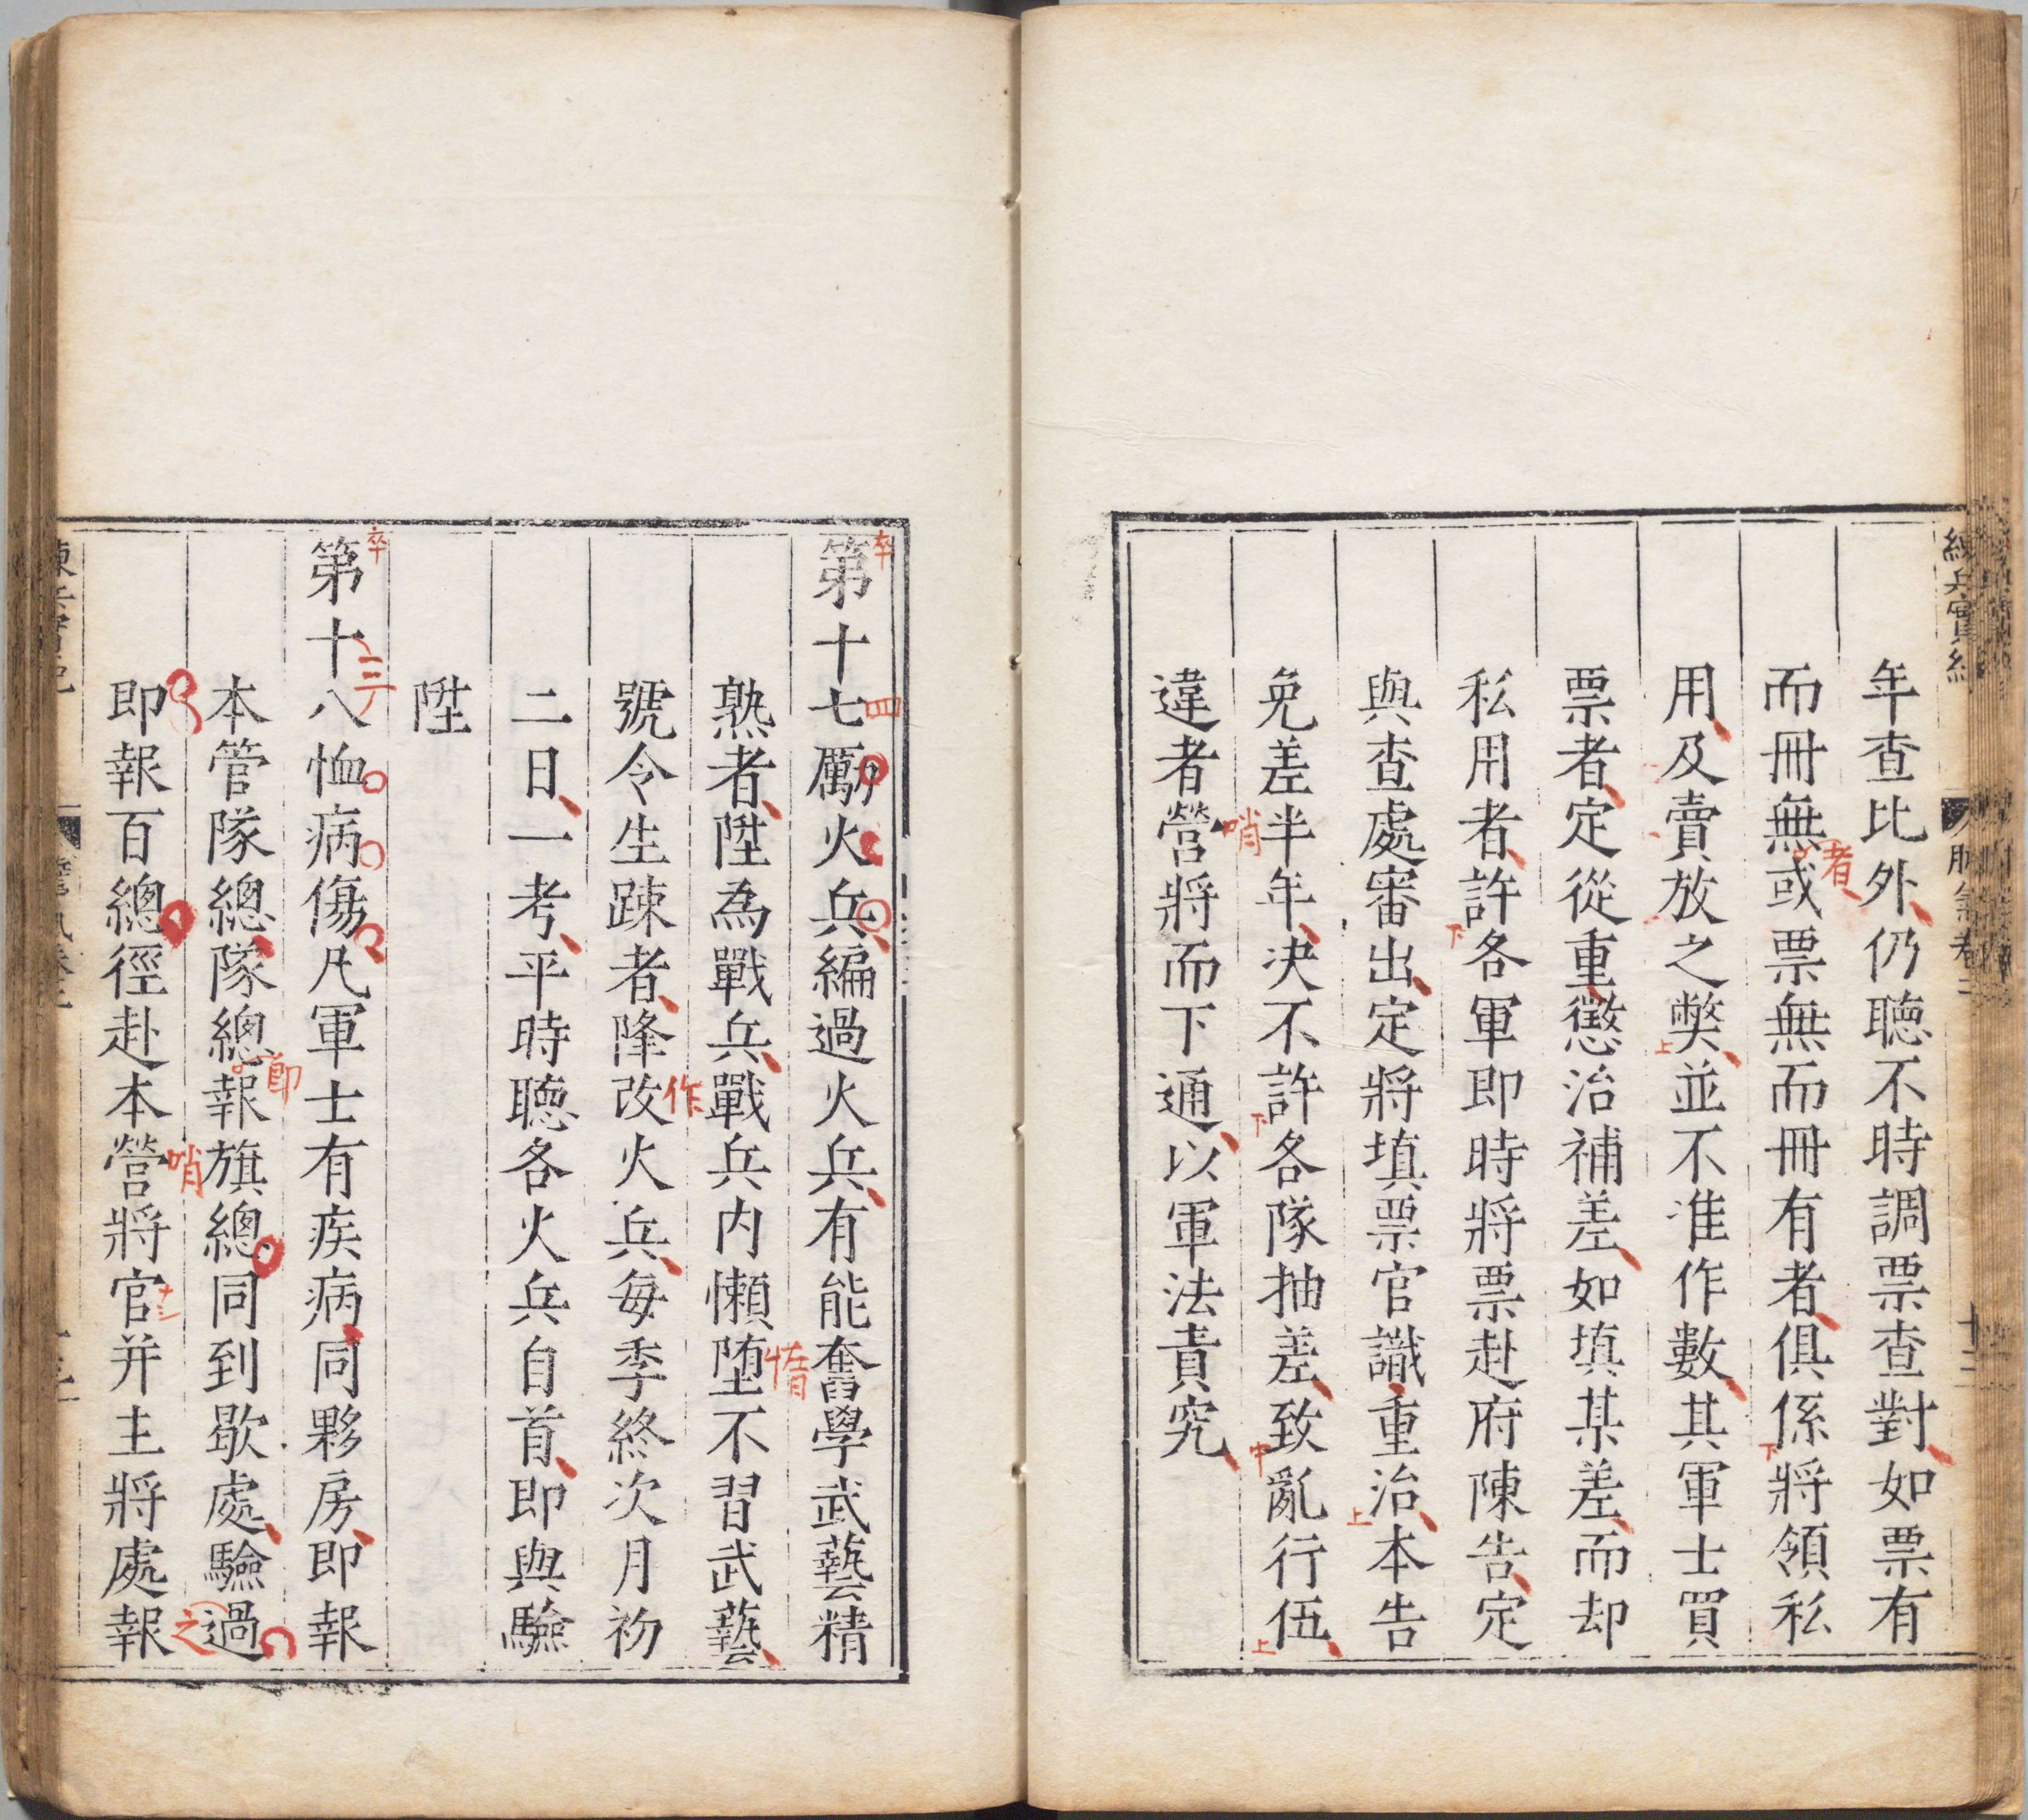 練兵實紀
年查比外仍聽不時調票查對如票有
而冊無或票無而冊有者俱係將領私
者
用及賣放之弊並不准作數其軍士買
票者定從重懲治補差如填某差而却
私用者許各軍即時將票赴府陳告定
與查處審出定將填票官識重治本告
免差半年决不許各隊抽差致亂行伍
違者營將而下通以軍法責究
哨
第十七勵火兵編過火兵有能奮學武藝精
卒
四
熟者陞為戰兵戰兵内懶堕不習武藝
惰
號令生踈者降改火兵每季終次月初
作
二日一考平時聽各火兵自首即與驗
陞
第十八恤病傷凡軍士有疾病同夥房即報
卒
三
本管隊總隊總報旗總同到歇處驗過
即
即報百總徑赴本營將官并主將處報
哨
之